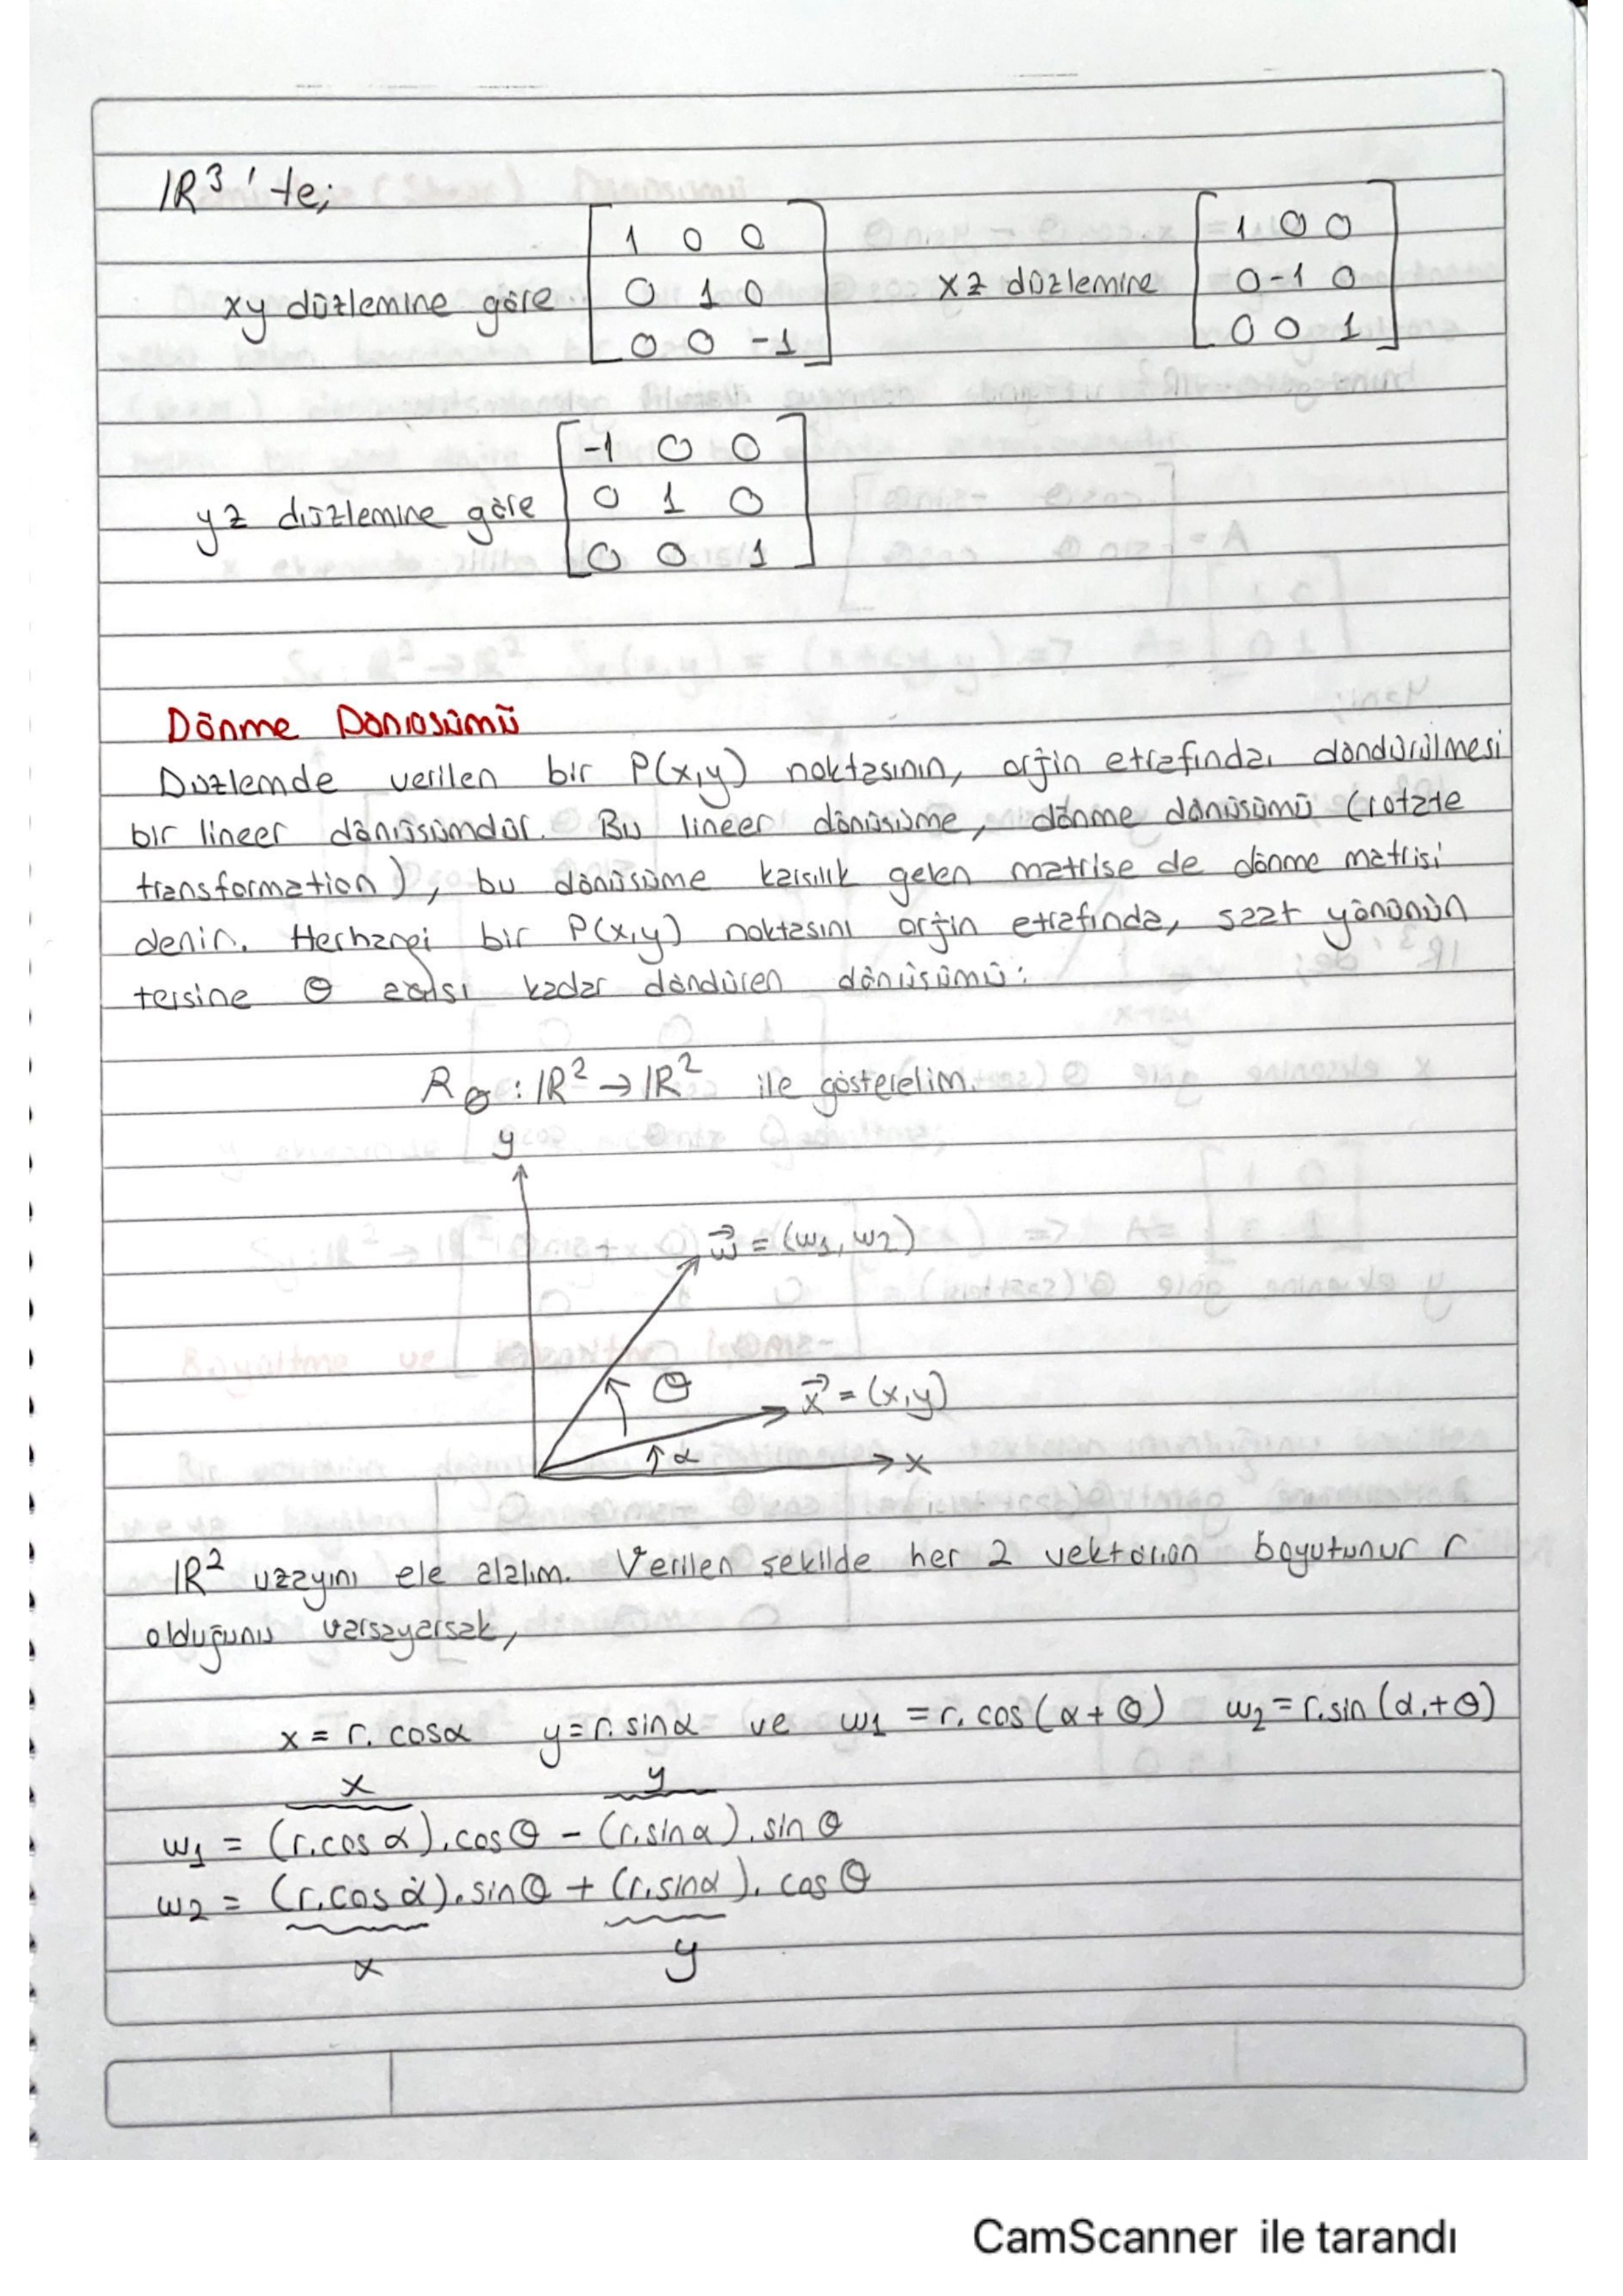 IR³'te;
xy düzlemine göre [1 0 0
0 1 0
0 0 -1]
xz düzlemine [1 0 0
0 -1 0
0 0 1]
yz düzlemine göre [-1 0 0
0 1 0
0 0 1]
Dönme Dönüsümü
Düzlemde verilen bir P(x,y) noktasının, orjin etrafında döndürülmesi
bir lineer dönüsümdür. Bu lineer dönüsüme, dönme dönüsümü (rotate
transformation), bu dönüsüme karsılık gelen matrise de dönme matrisi
denir. Herhangi bir P(x,y) noktasını orjin etrafında, saat yönünün
tersine θ açısı kadar döndüren dönüsümü:
Rθ : IR² → IR² ile gösterelim.
y
w⃗ = (w₁, w₂)
θ
x⃗ = (x,y)
α
x
IR² uzayını ele alalım. Verilen sekilde her 2 vektörün boyutunur r
olduğunu varsayarsak,
x = r. cosα y = r. sinα ve w₁ = r. cos(α + θ) w₂ = r. sin(α + θ)
x y
w₁ = (r.cos α). cosθ - (r.sinα). sinθ
w₂ = (r.cos α). sinθ + (r.sinα). cosθ
x y
CamScanner ile tarandı